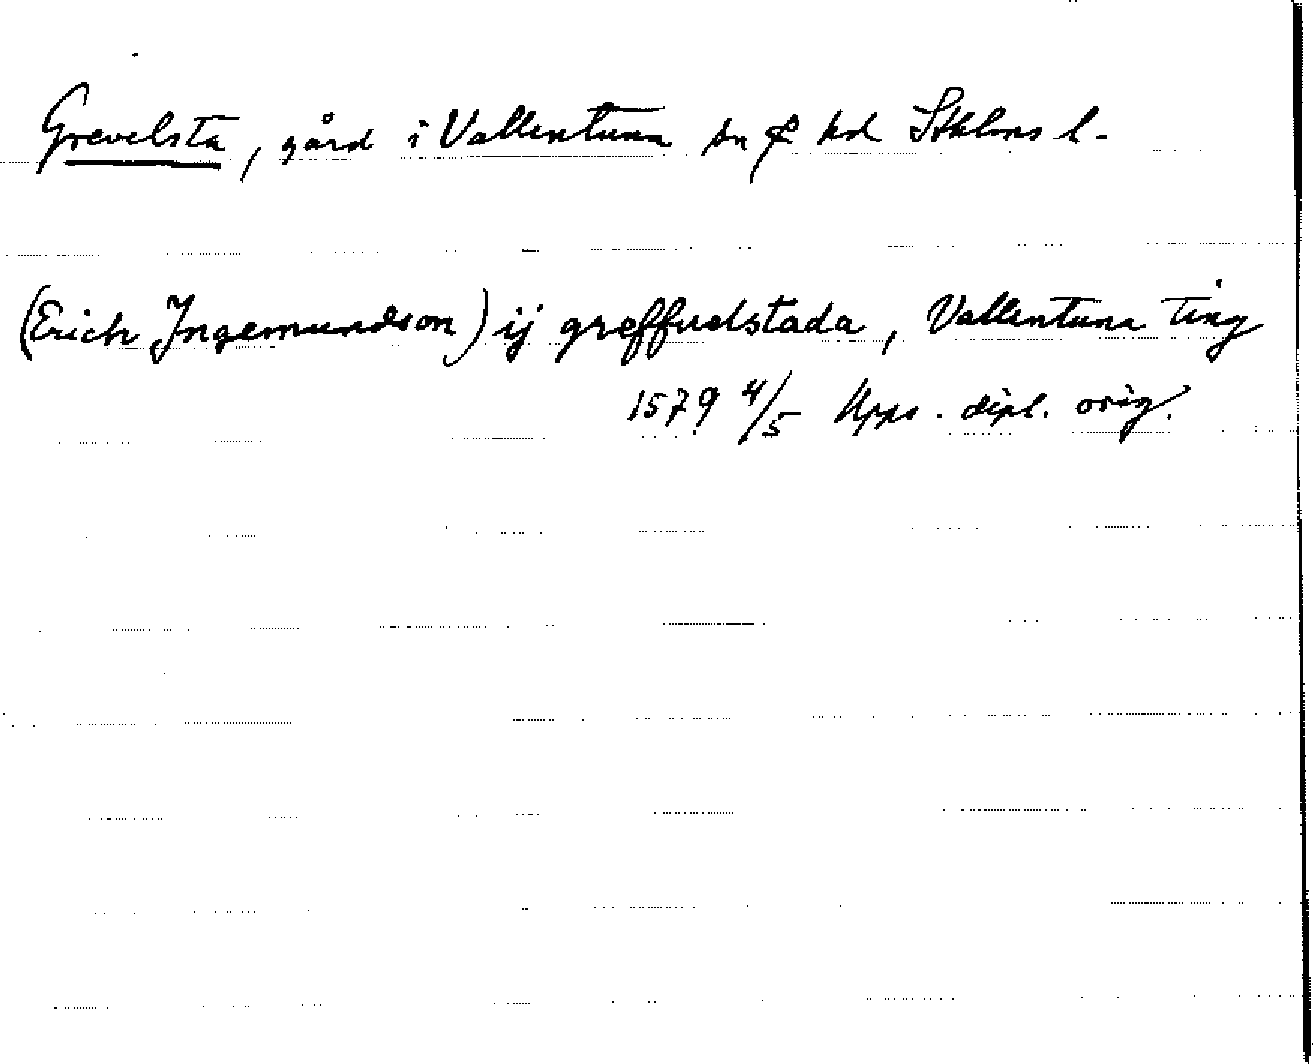 Grevelsta, gård i Vallentuna sn & hd Sthlms l.
(Erich Ingemundson) ij greffuelstada, Vallentuna ting
1579 4/5 Upps. dipl. orig.